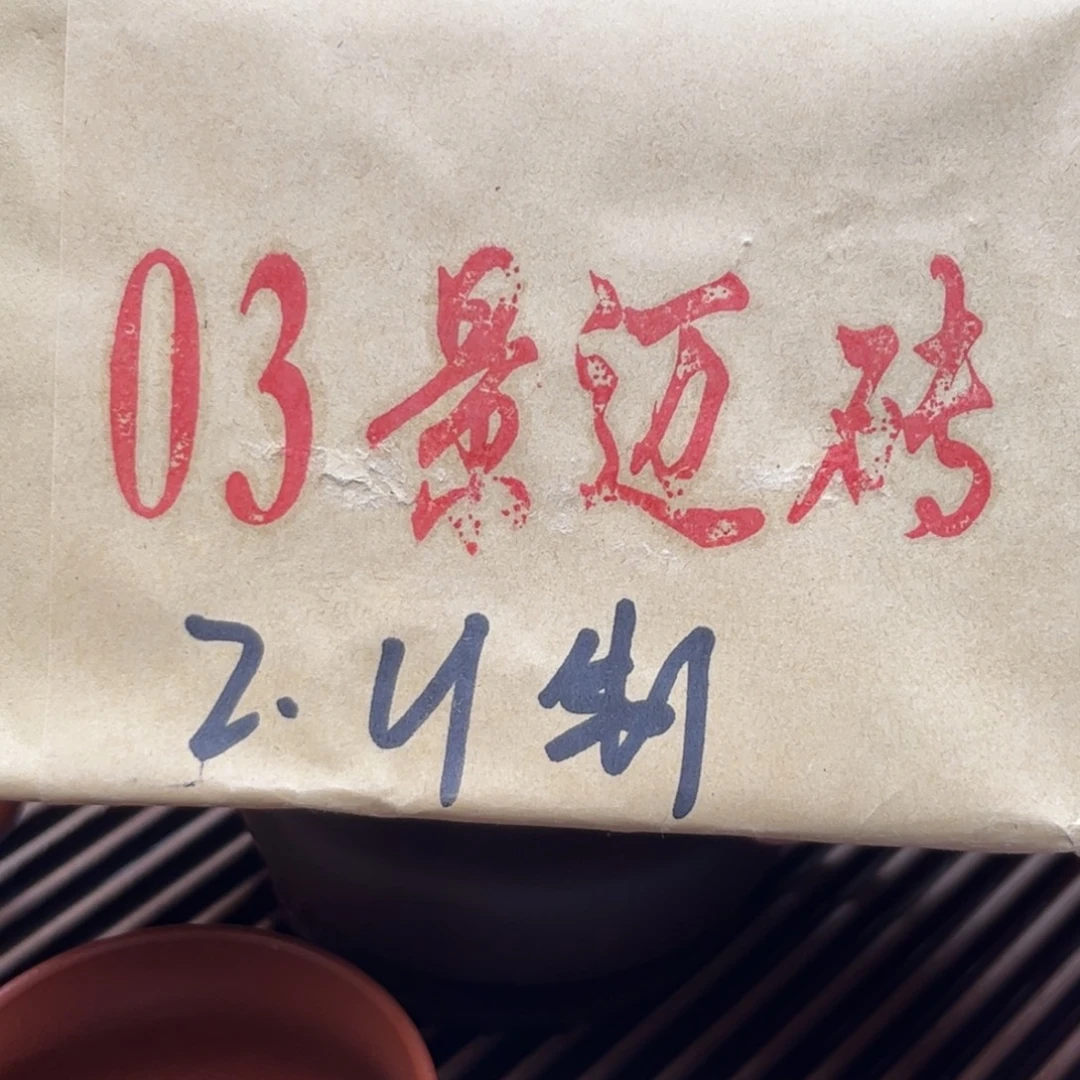 03景迈砖
2.4制